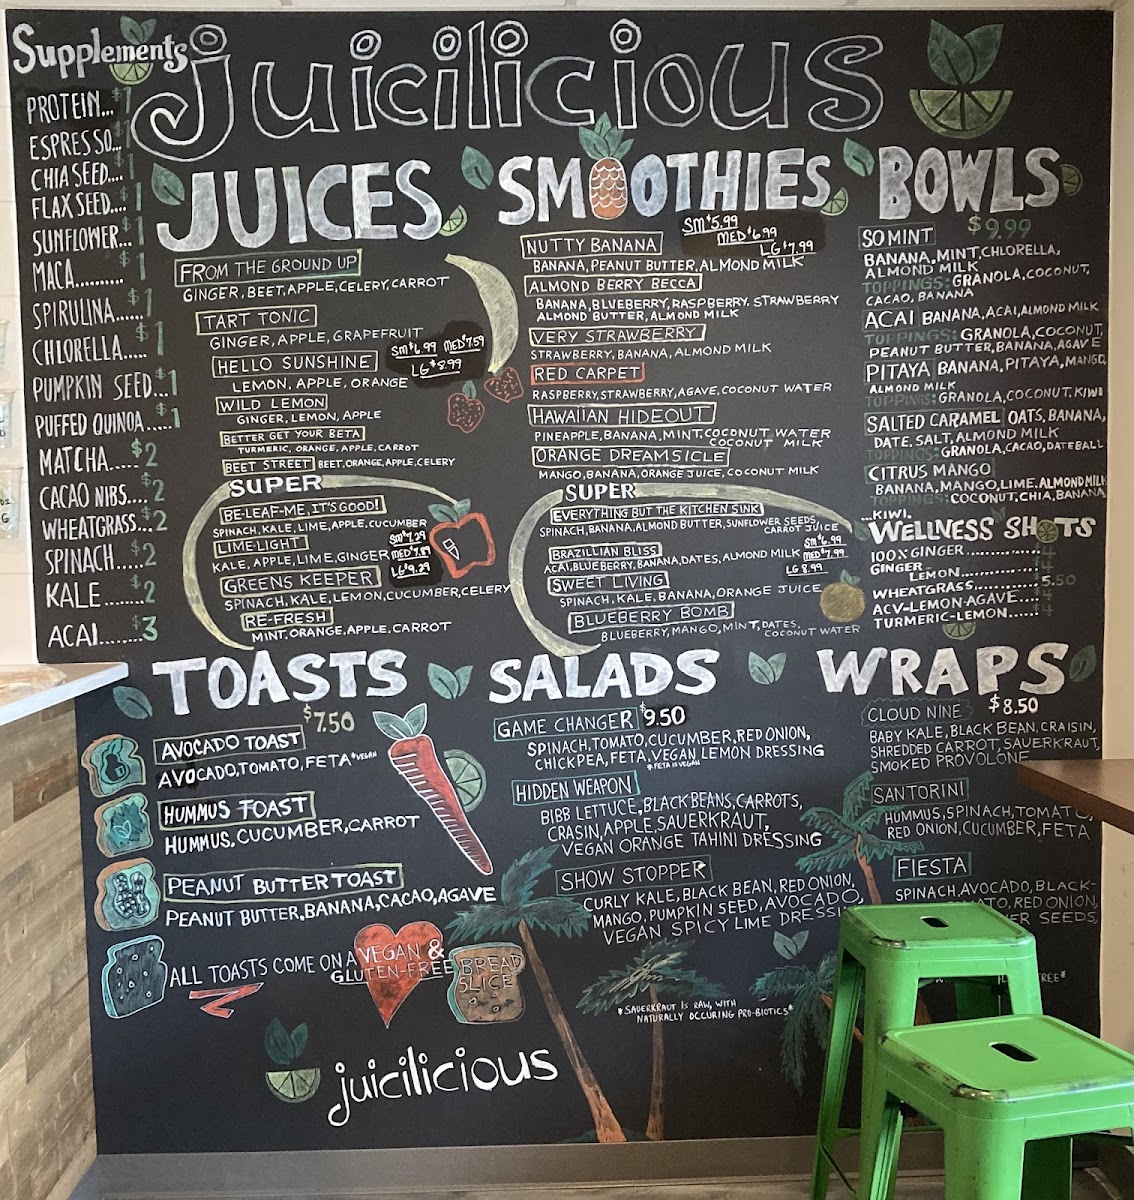 Supplements
PROTEIN...$1
ESPRESSO..$1
CHIA SEED....$1
FLAX SEED....$1
SUNFLOWER...$1
MACA..........$1
SPIRULINA......$1
CHLORELLA.....$1
PUMPKIN SEED...$1
PUFFED QUINOA.....$1
MATCHA.....$2
CACAO NIBS...$2
WHEATGRASS...$2
SPINACH.....$2
KALE........$2
ACAI.......$3
juicilicious
JUICES
FROM THE GROUND UP
GINGER, BEET, APPLE, CELERY, CARROT
TART TONIC
GINGER, APPLE, GRAPEFRUIT
SM $6.99 MED $7.59
LG $8.99
HELLO SUNSHINE
LEMON, APPLE, ORANGE
WILD LEMON
GINGER, LEMON, APPLE
BETTER GET YOUR BETA
TURMERIC, ORANGE, APPLE, CARROT
BEET STREET BEET, ORANGE, APPLE, CELERY
SUPER
BE-LEAF-ME, IT'S GOOD!
SPINACH, KALE, LIME, APPLE, CUCUMBER
LIME-LIGHT
KALE, APPLE, LIME, GINGER
SM $7.29
MED $7.89
LG $9.29
GREENS KEEPER
SPINACH, KALE, LEMON, CUCUMBER, CELERY
RE-FRESH
MINT, ORANGE, APPLE, CARROT
SMOOTHIES
SM $5.99
MED $6.99
LG $7.99
NUTTY BANANA
BANANA, PEANUT BUTTER, ALMOND MILK
ALMOND BERRY BECCA
BANANA, BLUEBERRY, RASPBERRY, STRAWBERRY
ALMOND BUTTER, ALMOND MILK
VERY STRAWBERRY
STRAWBERRY, BANANA, ALMOND MILK
RED CARPET
RASPBERRY, STRAWBERRY, AGAVE, COCONUT WATER
HAWAIIAN HIDEOUT
PINEAPPLE, BANANA, MINT, COCONUT WATER
COCONUT MILK
ORANGE DREAMSICLE
MANGO, BANANA, ORANGE JUICE, COCONUT MILK
SUPER
EVERYTHING BUT THE KITCHEN SINK
SPINACH, BANANA, ALMOND BUTTER, SUNFLOWER SEEDS,
CARROT JUICE
BRAZILLIAN BLISS
ACAI, BLUEBERRY, BANANA, DATES, ALMOND MILK
SM $6.99
MED $7.99
LG 8.99
SWEET LIVING
SPINACH, KALE, BANANA, ORANGE JUICE
BLUEBERRY BOMB
BLUEBERRY, MANGO, MINT, DATES,
COCONUT WATER
BOWLS
$9.99
SO MINT
BANANA, MINT, CHLORELLA,
ALMOND MILK
TOPPINGS: GRANOLA, COCONUT,
CACAO, BANANA
ACAI BANANA, ACAI, ALMOND MILK
TOPPINGS: GRANOLA, COCONUT,
PEANUT BUTTER, BANANA, AGAVE
PITAYA BANANA, PITAYA, MANGO,
ALMOND MILK
TOPPINGS: GRANOLA, COCONUT, KIWI
SALTED CARAMEL OATS, BANANA,
DATE, SALT, ALMOND MILK
TOPPINGS: GRANOLA, CACAO, DATEBALL
CITRUS MANGO
BANANA, MANGO, LIME, ALMOND MILK
TOPPINGS: COCONUT, CHIA, BANANA,
...KIWI.
WELLNESS SHOTS
100% GINGER.................4
GINGER-
LEMON.................4
WHEATGRASS..............$5.50
ACV-LEMON-AGAVE.....4
TURMERIC-LEMON......4
TOASTS
$7.50
AVOCADO TOAST
AVOCADO, TOMATO, FETA *VEGAN
HUMMUS TOAST
HUMMUS, CUCUMBER, CARROT
PEANUT BUTTER TOAST
PEANUT BUTTER, BANANA, CACAO, AGAVE
ALL TOASTS COME ON A VEGAN &
GLUTEN-FREE
BREAD
SLICE
juicilicious
SALADS
GAME CHANGER $9.50
SPINACH, TOMATO, CUCUMBER, RED ONION,
CHICKPEA, FETA, VEGAN LEMON DRESSING
*FETA IS VEGAN
HIDDEN WEAPON
BIBB LETTUCE, BLACK BEANS, CARROTS,
CRASIN, APPLE, SAUERKRAUT,
VEGAN ORANGE TAHINI DRESSING
SHOW STOPPER
CURLY KALE, BLACK BEAN, RED ONION,
MANGO, PUMPKIN SEED, AVOCADO,
VEGAN SPICY LIME DRESSI
*SAUERKRAUT IS RAW, WITH
NATURALLY OCCURING PRO-BIOTICS*
WRAPS
$8.50
CLOUD NINE
BABY KALE, BLACK BEAN, CRAISIN,
SHREDDED CARROT, SAUERKRAUT,
SMOKED PROVOLONE
SANTORINI
HUMMUS, SPINACH, TOMATO,
RED ONION, CUCUMBER, FETA
FIESTA
SPINACH, AVOCADO, BLACK-
RED ONION,
SEEDS,